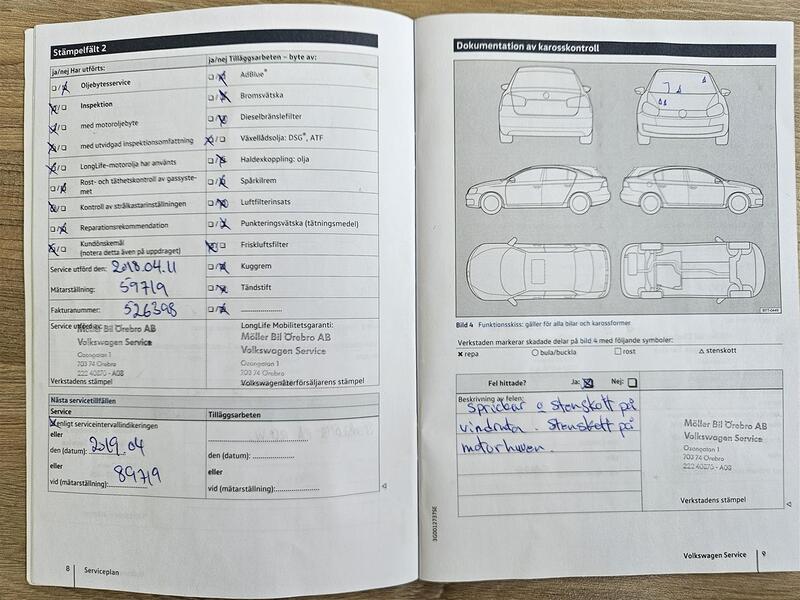 Stämpelfält 2
ja/nej Har utförts:
Oljebytesservice
Inspektion
med motoroljebyte
med utvidgad inspektionsomfattning
LongLife-motorolja har använts
Rost- och täthetskontroll av gassyste-
met
Kontroll av strålkastarinställningen
Reparationsrekommendation
Kundönskemål
(notera detta även på uppdraget)
Service utförd den: 2018.04.11
Mätarställning: 59719
Fakturanummer: 526398
Service utförd av:
Möller Bil Örebro AB
Volkswagen Service
Ozongatan 1
703 74 Örebro
222 40275 - A08
Verkstadens stämpel
ja/nej Tilläggsarbeten – byte av:
AdBlue®
Bromsvätska
Dieselbränslefilter
Växellådsolja: DSG®, ATF
Haldexkoppling: olja
Spårkilrem
Luftfilterinsats
Punkteringsvätska (tätningsmedel)
Friskluftsfilter
Kuggrem
Tändstift
....................
LongLife Mobilitetsgaranti:
Möller Bil Örebro AB
Volkswagen Service
Ozongatan 1
703 74 Örebro
222 40275 - A08
Volkswagenåterförsäljarens stämpel
Nästa servicetillfällen
Service
enligt serviceintervallindikeringen
eller
den (datum): 2019.04
eller
89719
vid (mätarställning):
Tilläggsarbeten
den (datum): ....................
eller
vid (mätarställning):....................
8 Serviceplan
Dokumentation av karosskontroll
B1T-0449
Bild 4 Funktionsskiss: gäller för alla bilar och karossformer
Verkstaden markerar skadade delar på bild 4 med följande symboler:
x repa
○ bula/buckla
□ rost
△ stenskott
Fel hittade?
Ja:
Nej:
Beskrivning av felen:
sprickor o stenskott på
vindruta. Stenskott på
motorhuven.
Möller Bil Örebro AB
Volkswagen Service
Ozongatan 1
703 74 Örebro
222 40275 - A08
Verkstadens stämpel
3G0012737SE
Volkswagen Service 9